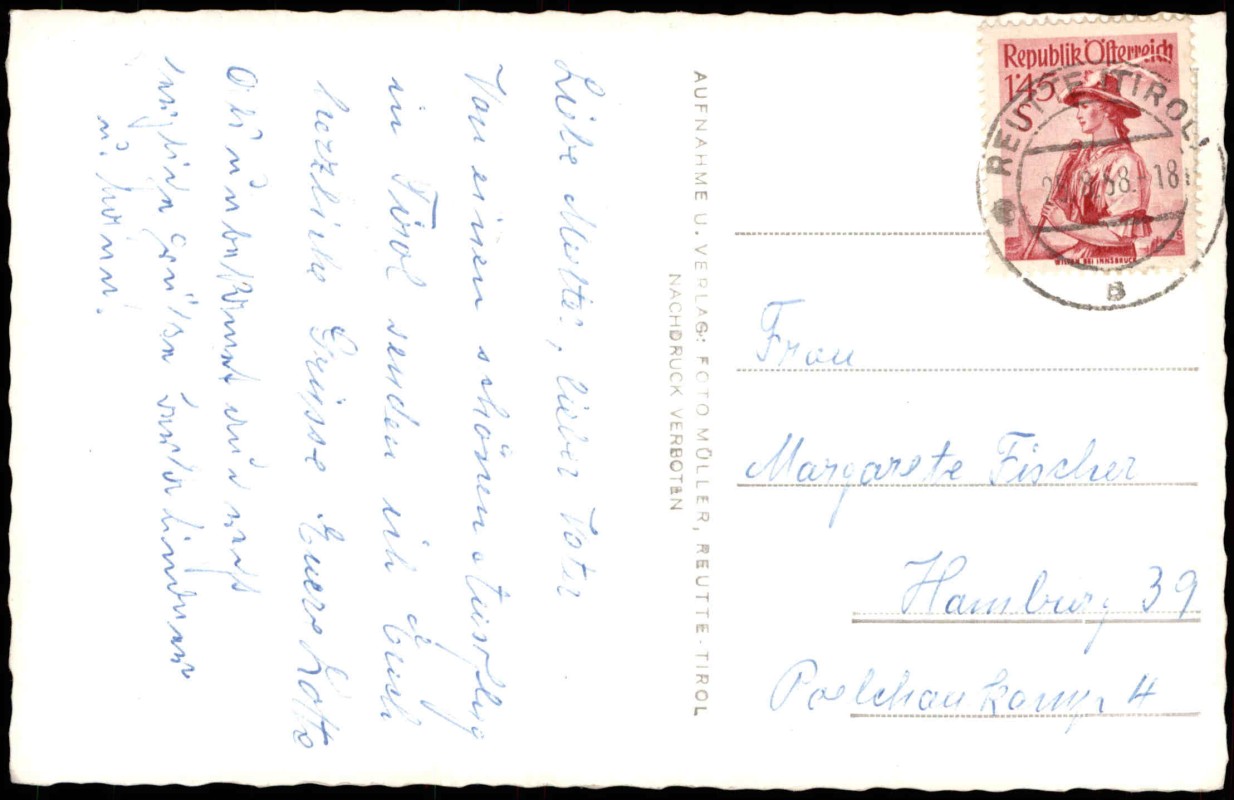 Liebe Mutter, lieber Vater
Von einen schönen Ausflug
in Tirol senden ich Euch
herzliche Grüsse Eure Lotte
Unbekannt und
grüßen
u.
AUFNAHME U. VERLAG: FOTO MÜLLER, REUTTE-TIROL
NACHDRUCK VERBOTEN
Republik Österreich
1'45
S
WILTEN BEI INNSBRUCK
REUTTE, TIROL
8.58.-18
B
Frau
Margarete Fischer
Hamburg 39
Poelchaukamp 4